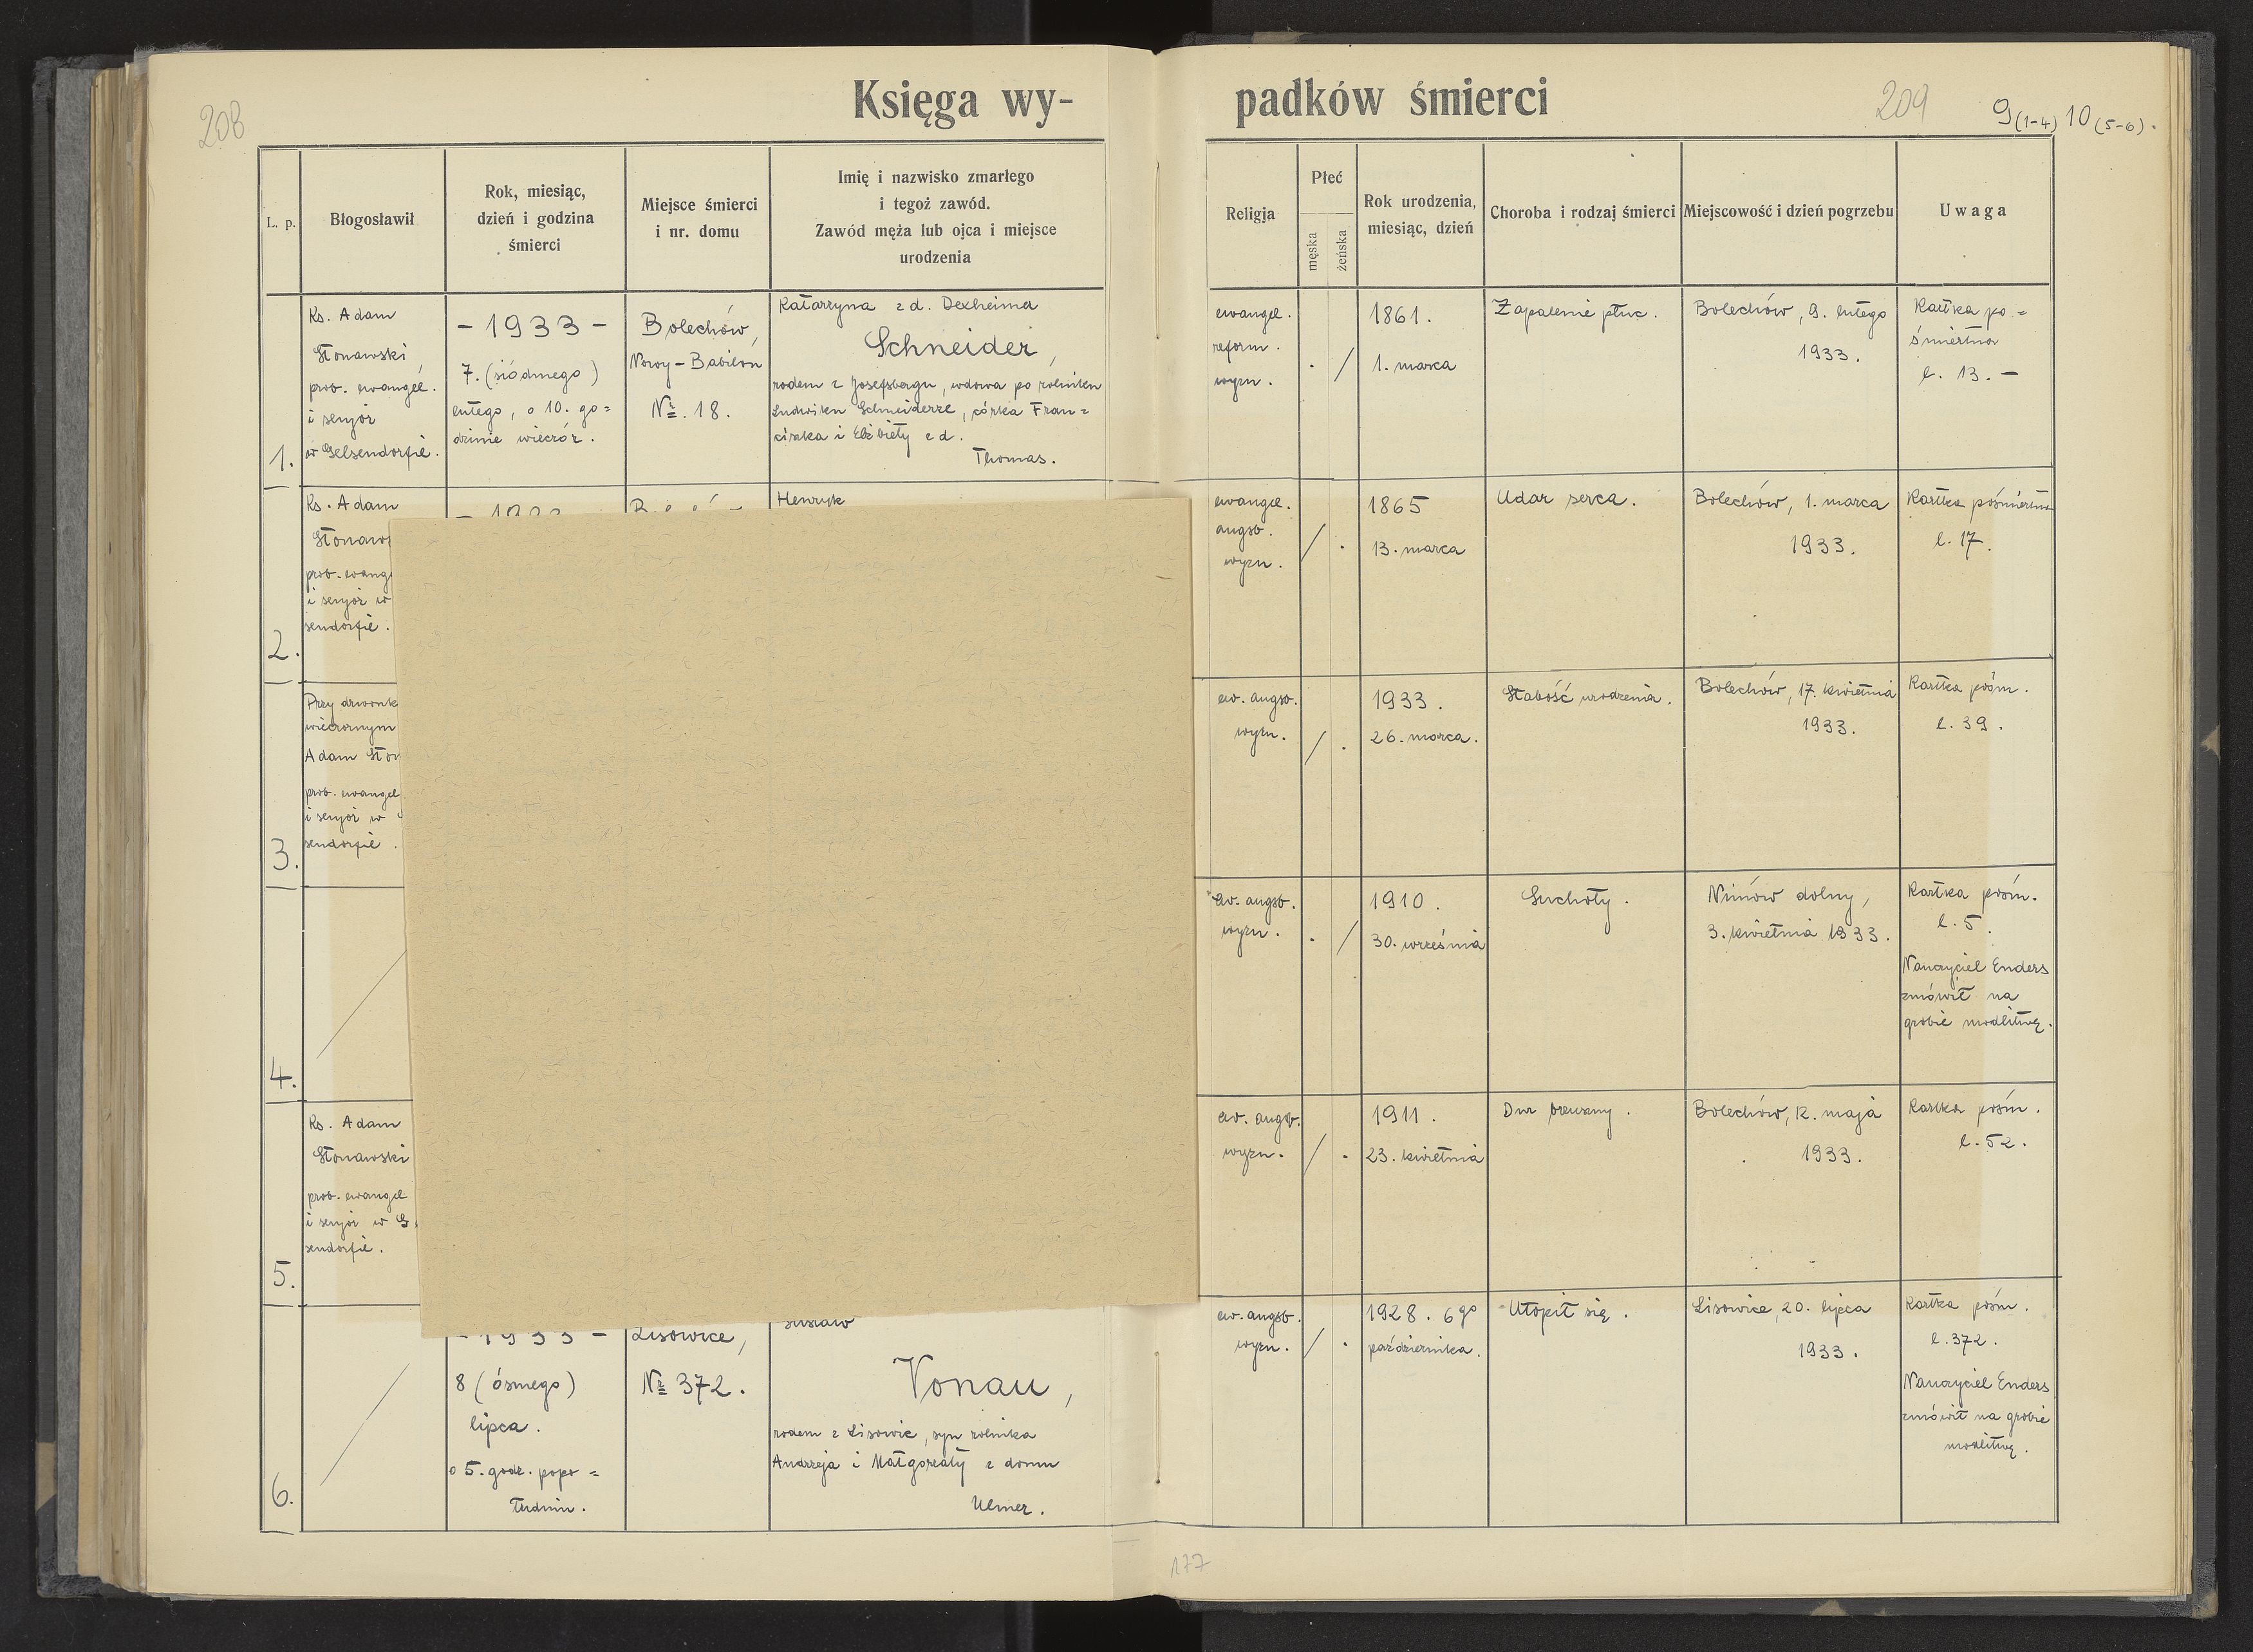 208
Księga wy-
padków śmierci
209
9 (1-4) 10 (5-6).
L. p.
Błogosławił
Rok, miesiąc,
dzień i godzina
śmierci
Miejsce śmierci
i nr. domu
Imię i nazwisko zmarłego
i tegoż zawód.
Zawód męża lub ojca i miejsce
urodzenia
Religja
Płeć
męska
żeńska
Rok urodzenia,
miesiąc, dzień
Choroba i rodzaj śmierci
Miejscowość i dzień pogrzebu
Uwaga
1.
Ks. Adam
Stonawski
prob. ewangel.
i senjor
w Gelsendorfie.
- 1933 -
7. (siódmego)
lutego, o 10. go=
dzinie wieczór.
Bolechów,
Nowy-Babilon
Nr. 18.
Katarzyna z d. Dexheimer
Schneider,
rodem z Josefsbergu, wdowa po rolniku
Ludwiku Schneiderze, córka Fran=
ciszka i Elżbiety z d.
Thomas.
ewangel.
reform.
wyzn.
. /
1861.
1. marca
Zapalenie płuc.
Bolechów, 9. lutego
1933.
Kartka po=
śmiertna
l. 13. -
2.
Ks. Adam
prob. ewang
i senjor w
sendorfie.
Henryk
ewangel.
augsb.
wyzn.
/ .
1865
13. marca
Udar serca.
Bolechów, 1. marca
1933.
Kartka pośmiertna
l. 17.
3.
Przy dzwonk
wieczornym
Adam Ston
prob. ewangel
i senjor w
sendorfie.
ew. augsb.
wyzn.
/ .
1933.
26. marca.
Słabość urodzenia.
Bolechów, 17. kwietnia
1933.
Kartka pośm.
l. 39.
4.
ew. augsb.
wyzn.
. /
1910.
30. września
Suchoty.
Niniów dolny,
3. kwietnia 1933.
Kartka pośm.
l. 5.
Nauczyciel Enders
zmówił na
grobie modlitwę.
5.
Ks. Adam
Stonawski
prob. ewangel
i senjor w G
sendorfie.
ew. augsb.
wyzn.
/ .
1911.
23. kwietnia
Dur brzuszny.
Bolechów, 12. maja
1933.
Kartka pośm.
l. 52.
6.
- 1933 -
8 (ósmego)
lipca.
o 5. godz. popo=
łudniu.
Lisowice,
Nr 372.
Vonau,
rodem z Lisowic, syn rolnika
Andrzeja i Małgorzaty z domu
Ulmer.
ew. augsb.
wyzn.
/ .
1928. 6go
października.
Utopił się.
Lisowice, 20. lipca
1933.
Kartka pośm.
l. 372.
Nauczyciel Enders
zmówił na grobie
modlitwę.
177